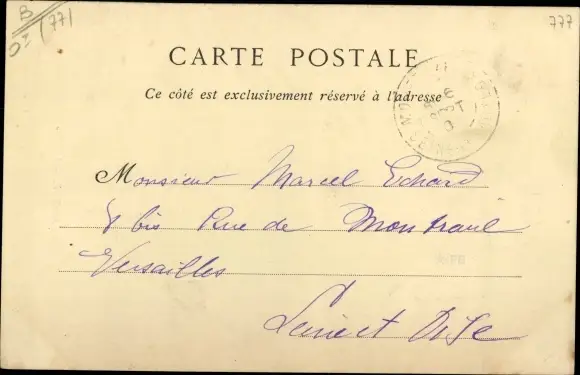 B
(77)
777
CARTE POSTALE
Ce côté est exclusivement réservé à l'adresse
Monsieur Marcel Echard
8 bis Rue de
Versailles
Seine et Oise